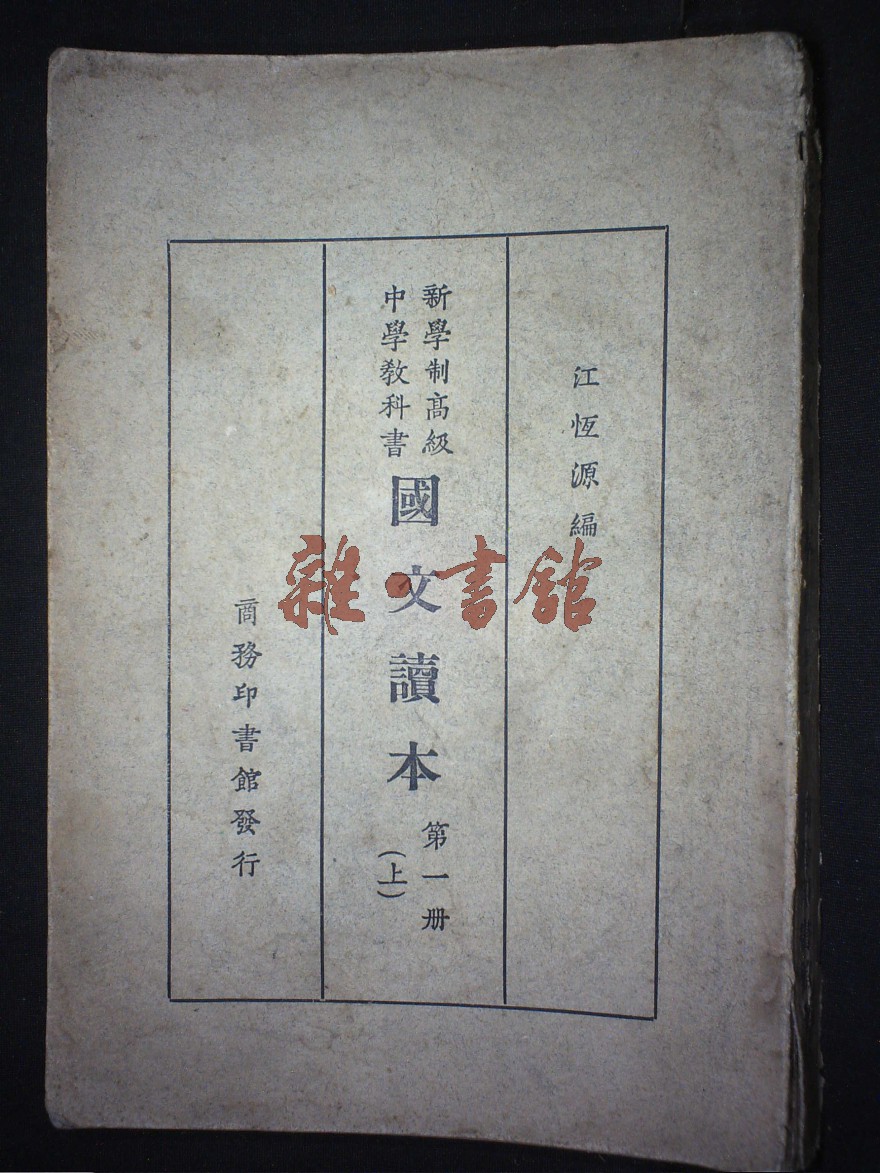 江恆源編
新學制高級
中學教科書
國文讀本
第一册
(上)
商務印書館發行
雜·書館